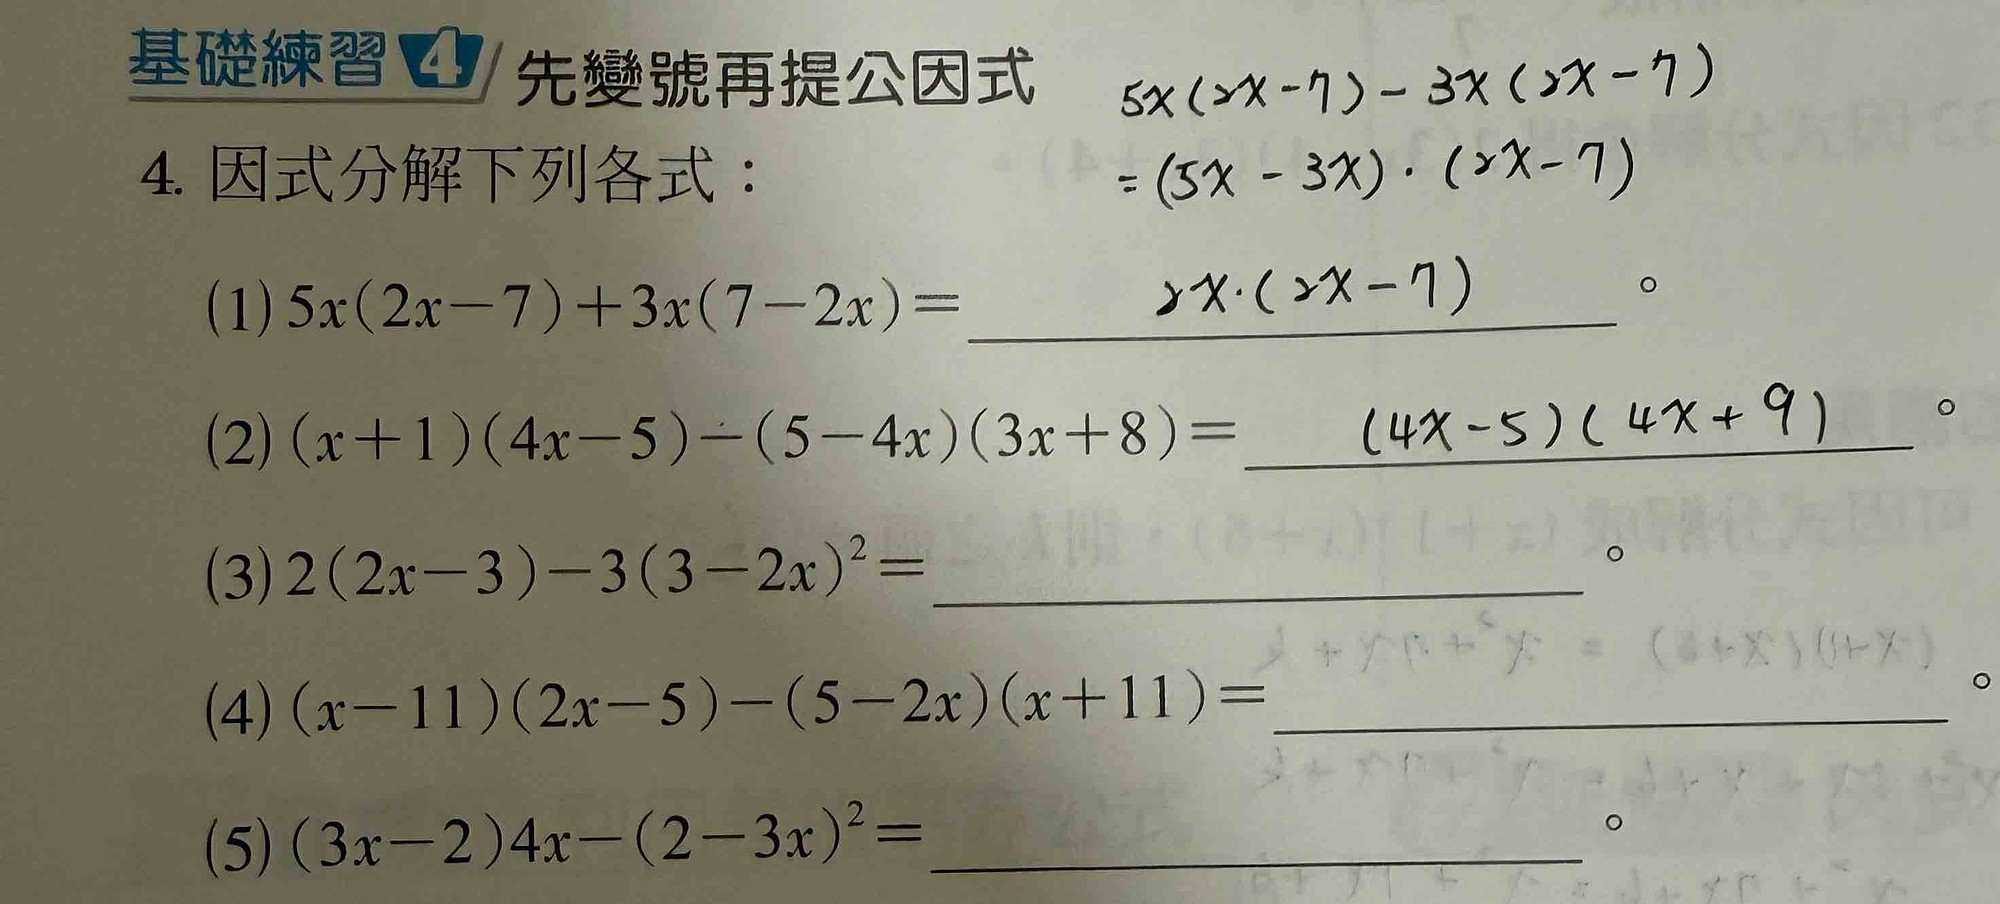 基礎練習 4 先變號再提公因式
5x(2x-7)-3x(2x-7)
=(5x-3x)·(2x-7)
4. 因式分解下列各式：
(1) 5x(2x-7)+3x(7-2x)= 2x·(2x-7) 。
(2) (x+1)(4x-5)-(5-4x)(3x+8)= (4x-5)(4x+9) 。
(3) 2(2x-3)-3(3-2x)²= 。
(4) (x-11)(2x-5)-(5-2x)(x+11)= 。
(5) (3x-2)4x-(2-3x)²= 。